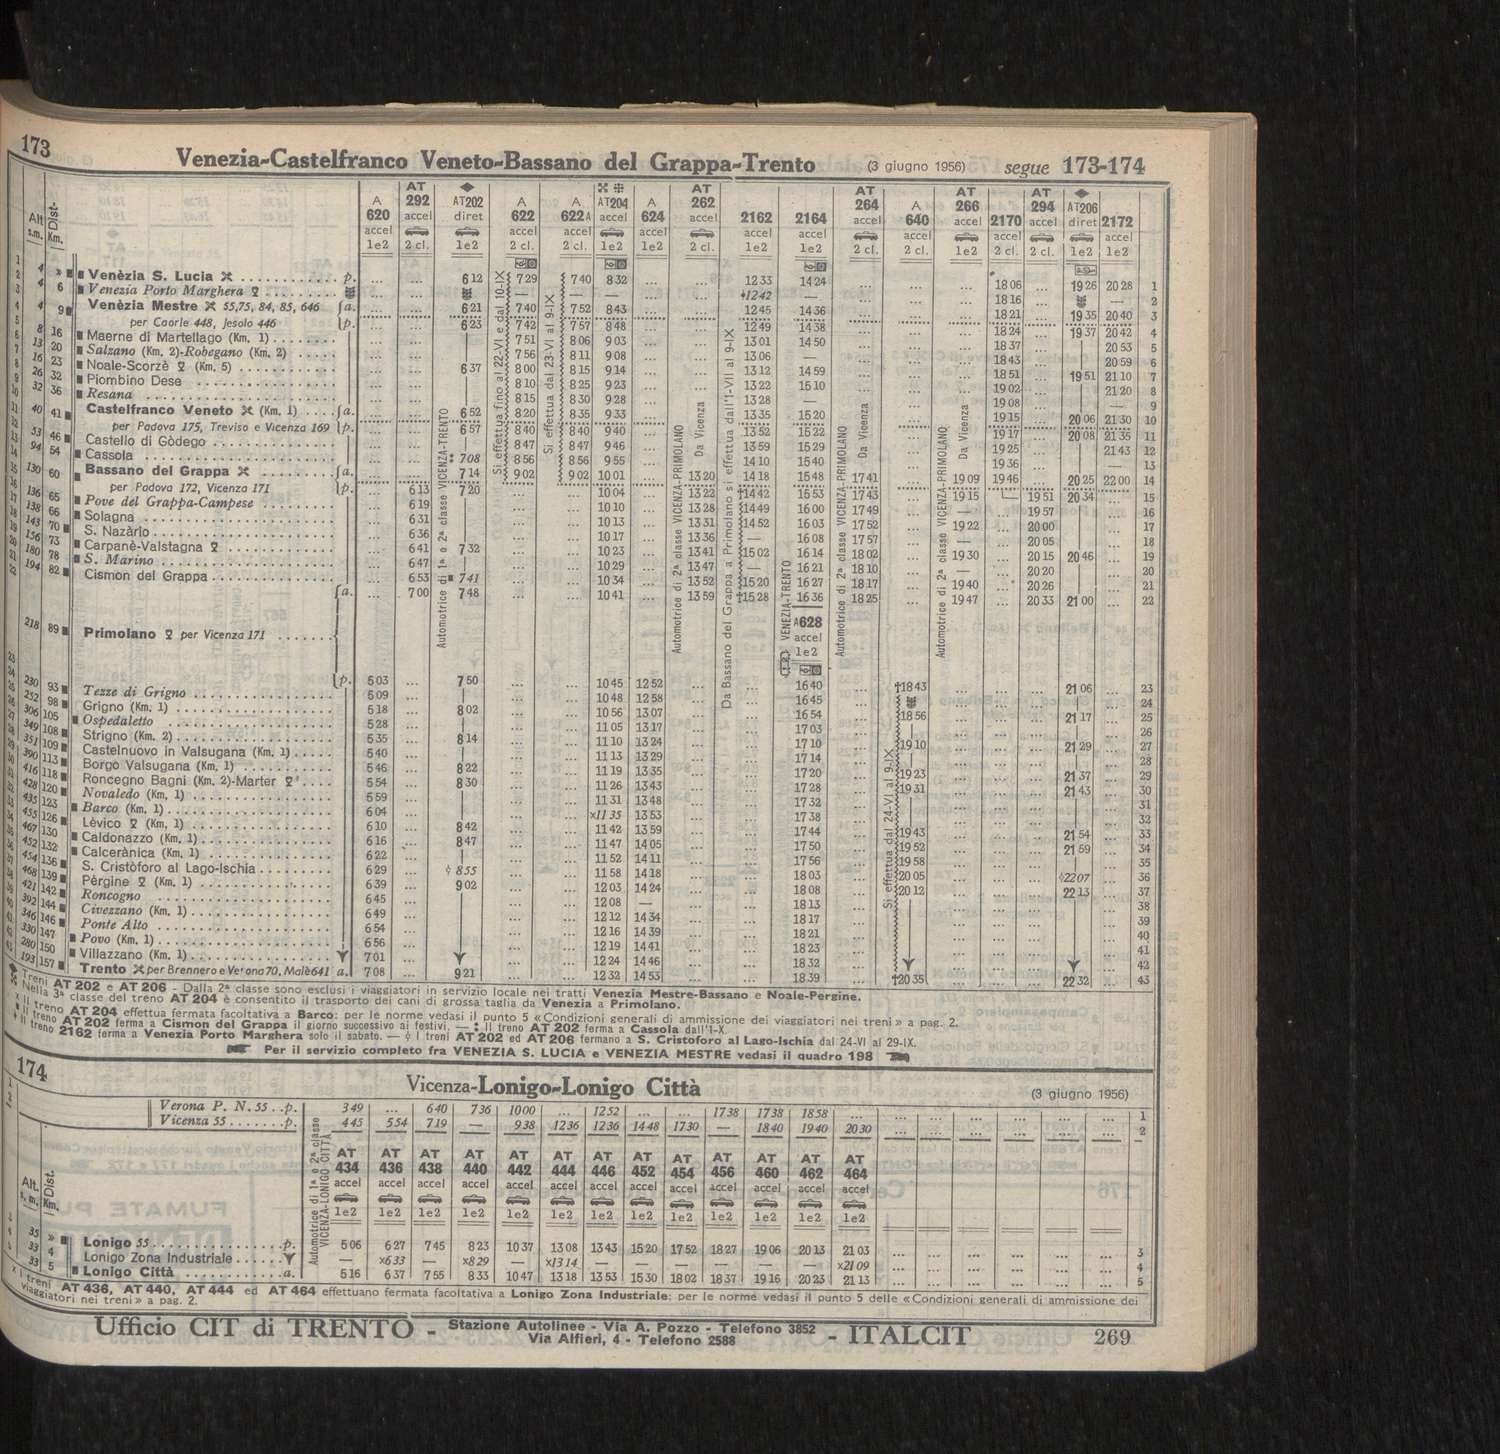 173
Venezia-Castelfranco Veneto-Bassano del Grappa-Trento (3 giugno 1956) segue 173-174
Alt. s.m. Dist. Km.
A 620 accel 1e2
AT 292 accel 2 cl.
AT202 diret 1e2
A 622 accel 2 cl.
A 622A accel 2 cl.
AT204 accel 1e2
A 624 accel 1e2
AT 262 accel 2 cl.
2162 accel 1e2
2164 accel 1e2
AT 264 accel 2 cl.
A 640 accel 2 cl.
AT 266 accel 2 cl.
2170 accel 1e2
AT 294 accel 2 cl.
AT206 diret 1e2
2172 accel 1e2
Venèzia S. Lucia p. ... ... 6 12 7 29 7 40 8 32 ... ... 12 33 14 24 ... ... ... 18 06 ... 19 26 20 28 1
6 Venezia Porto Marghera — — — +12 42 — 18 16 — 2
9 Venèzia Mestre 55,75, 84, 85, 646 a. 6 21 7 40 7 52 8 43 12 45 14 36 18 21 19 35 20 40 3
per Caorle 448, Jesolo 446 p. 6 23 7 42 7 57 8 48 12 49 14 38 18 24 19 37 20 42 4
16 Maerne di Martellago (Km. 1) 7 51 8 06 9 03 13 01 14 50 18 37 20 53 5
20 Salzano (Km. 2)-Robegano (Km. 2) 7 56 8 11 9 08 13 06 — 18 43 20 59 6
23 Noale-Scorzè (Km. 5) 6 37 8 00 8 15 9 14 13 12 14 59 18 51 19 51 21 10 7
32 Piombino Dese 8 10 8 25 9 23 13 22 15 10 19 02 21 20 8
36 Resana 8 15 8 30 9 28 13 28 — 19 08 — 9
41 Castelfranco Veneto (Km. 1) a. 6 52 8 20 8 35 9 33 13 35 15 20 19 15 20 06 21 30 10
per Padova 175, Treviso e Vicenza 169 p. 6 57 8 40 8 40 9 40 13 52 15 22 19 17 20 08 21 35 11
46 Castello di Gòdego 8 47 8 47 9 46 13 59 15 29 19 25 21 43 12
54 Cassola 7 08 8 56 8 56 9 55 14 10 15 40 19 36 — 13
60 Bassano del Grappa a. 7 14 9 02 9 02 10 01 13 20 14 18 15 48 17 41 19 09 19 46 20 25 22 00 14
per Padova 172, Vicenza 171 p. 6 13 7 20 10 04 13 22 †14 42 15 53 17 43 19 15 19 51 20 34 15
65 Pove del Grappa-Campese 6 19 10 10 13 28 14 49 16 00 17 49 19 57 16
66 Solagna 6 31 10 13 13 31 14 52 16 03 17 52 19 22 20 00 17
70 S. Nazàrio 6 36 10 17 13 36 — 16 08 17 57 — 20 05 18
73 Carpanè-Valstagna 6 41 7 32 10 23 13 41 15 02 16 14 18 02 19 30 20 15 20 46 19
78 S. Marino 6 47 10 29 13 47 — 16 21 18 10 — 20 20 20
82 Cismon del Grappa 6 53 7 41 10 34 13 52 15 20 16 27 18 17 19 40 20 26 21
a. 7 00 7 48 10 41 13 59 †15 28 16 36 18 25 19 47 20 33 21 00 22
218 89 Primolano per Vicenza 171
A628 accel 1e2
p. 5 03 7 50 10 45 12 52 16 40 †18 43 21 06 23
230 93 Tezze di Grigno 5 09 10 48 12 58 16 45 24
252 98 Grigno (Km. 1) 5 18 8 02 10 56 13 07 16 54 18 56 21 17 25
306 105 Ospedaletto 5 28 11 05 13 17 17 03 26
349 108 Strigno (Km. 2) 5 35 8 14 11 10 13 24 17 10 19 10 21 29 27
351 109 Castelnuovo in Valsugana (Km. 1) 5 40 11 13 13 29 17 14 28
390 113 Borgo Valsugana (Km. 1) 5 46 8 22 11 19 13 35 17 20 19 23 21 37 29
416 118 Roncegno Bagni (Km. 2)-Marter 5 54 8 30 11 26 13 43 17 28 19 31 21 43 30
428 120 Novaledo (Km. 1) 5 59 11 31 13 48 17 32 31
435 123 Barco (Km. 1) 6 04 x11 35 13 53 17 38 32
455 126 Lèvico (Km. 1) 6 10 8 42 11 42 13 59 17 44 19 43 21 54 33
467 130 Caldonazzo (Km. 1) 6 16 8 47 11 47 14 05 17 50 19 52 21 59 34
452 132 Calcerànica (Km. 1) 6 22 11 52 14 11 17 56 19 58 35
454 136 S. Cristòforo al Lago-Ischia 6 29 ◊ 8 55 11 58 14 18 18 03 20 05 ◊22 07 36
468 139 Pèrgine (Km. 1) 6 39 9 02 12 03 14 24 18 08 20 12 22 13 37
421 142 Roncogno 6 45 12 08 — 18 13 38
392 144 Civezzano (Km. 1) 6 49 12 12 14 34 18 17 39
346 146 Ponte Alto 6 54 12 16 14 39 18 21 40
330 147 Povo (Km. 1) 6 56 12 19 14 41 18 23 41
280 150 Villazzano (Km. 1) 7 01 12 24 14 46 18 32 42
193 157 Trento per Brennero e Verona 70, Malè 641 a. 7 08 9 21 12 32 14 53 18 39 †20 35 22 32 43
Automotrice di 1ª e 2ª classe VICENZA-TRENTO
Si effettua fino al 22-VI e dal 10-IX
Si effettua dal 23-VI al 9-IX
Automotrice di 2ª classe VICENZA-PRIMOLANO
Da Vicenza
Da Bassano del Grappa a Primolano si effettua dall'1-VII al 9-IX
VENEZIA-TRENTO
Automotrice di 2ª classe VICENZA-PRIMOLANO
Da Vicenza
Si effettua dal 24-VI al 9-IX
Automotrice di 2ª classe VICENZA-PRIMOLANO
Da Vicenza
Treni AT 202 e AT 206 - Dalla 2ª classe sono esclusi i viaggiatori in servizio locale nei tratti Venezia Mestre-Bassano e Noale-Pergine.
Nella 3ª classe del treno AT 204 è consentito il trasporto dei cani di grossa taglia da Venezia a Primolano.
x Il treno AT 204 effettua fermata facoltativa a Barco: per le norme vedasi il punto 5 «Condizioni generali di ammissione dei viaggiatori nei treni» a pag. 2.
Il treno AT 202 ferma a Cismon del Grappa il giorno successivo ai festivi. — Il treno AT 202 ferma a Cassola dall'1-X.
Il treno 2162 ferma a Venezia Porto Marghera solo il sabato. — ◊ I treni AT 202 ed AT 206 fermano a S. Cristoforo al Lago-Ischia dal 24-VI al 29-IX.
Per il servizio completo fra VENEZIA S. LUCIA e VENEZIA MESTRE vedasi il quadro 198
174
Vicenza-Lonigo-Lonigo Città (3 giugno 1956)
Verona P. N. 55 p. 3 49 ... 6 40 7 36 10 00 ... 12 52 ... ... 17 38 17 38 18 58 ... 1
Vicenza 55 p. 4 45 5 54 7 19 — 9 38 12 36 12 36 14 48 17 30 — 18 40 19 40 20 30 2
Alt. s. m. Dist. Km.
Automotrice di 1ª e 2ª classe VICENZA-LONIGO CITTÀ
AT AT AT AT AT AT AT AT AT AT AT AT AT
434 436 438 440 442 444 446 452 454 456 460 462 464
accel accel accel accel accel accel accel accel accel accel accel accel accel
1e2 1e2 1e2 1e2 1e2 1e2 1e2 1e2 1e2 1e2 1e2 1e2 1e2
35 » Lonigo 55 p. 5 06 6 27 7 45 8 23 10 37 13 08 13 43 15 20 17 52 18 27 19 06 20 13 21 03 3
33 4 Lonigo Zona Industriale — x6 33 — x8 29 — x13 14 — — — — — — x21 09 4
33 5 Lonigo Città a. 5 16 6 37 7 55 8 33 10 47 13 18 13 53 15 30 18 02 18 37 19 16 20 23 21 13 5
x I treni AT 436, AT 440, AT 444 ed AT 464 effettuano fermata facoltativa a Lonigo Zona Industriale: per le norme vedasi il punto 5 delle «Condizioni generali di ammissione dei
viaggiatori nei treni» a pag. 2.
Ufficio CIT di TRENTO - Stazione Autolinee - Via A. Pozzo - Telefono 3852
Via Alfieri, 4 - Telefono 2588 - ITALCIT 269